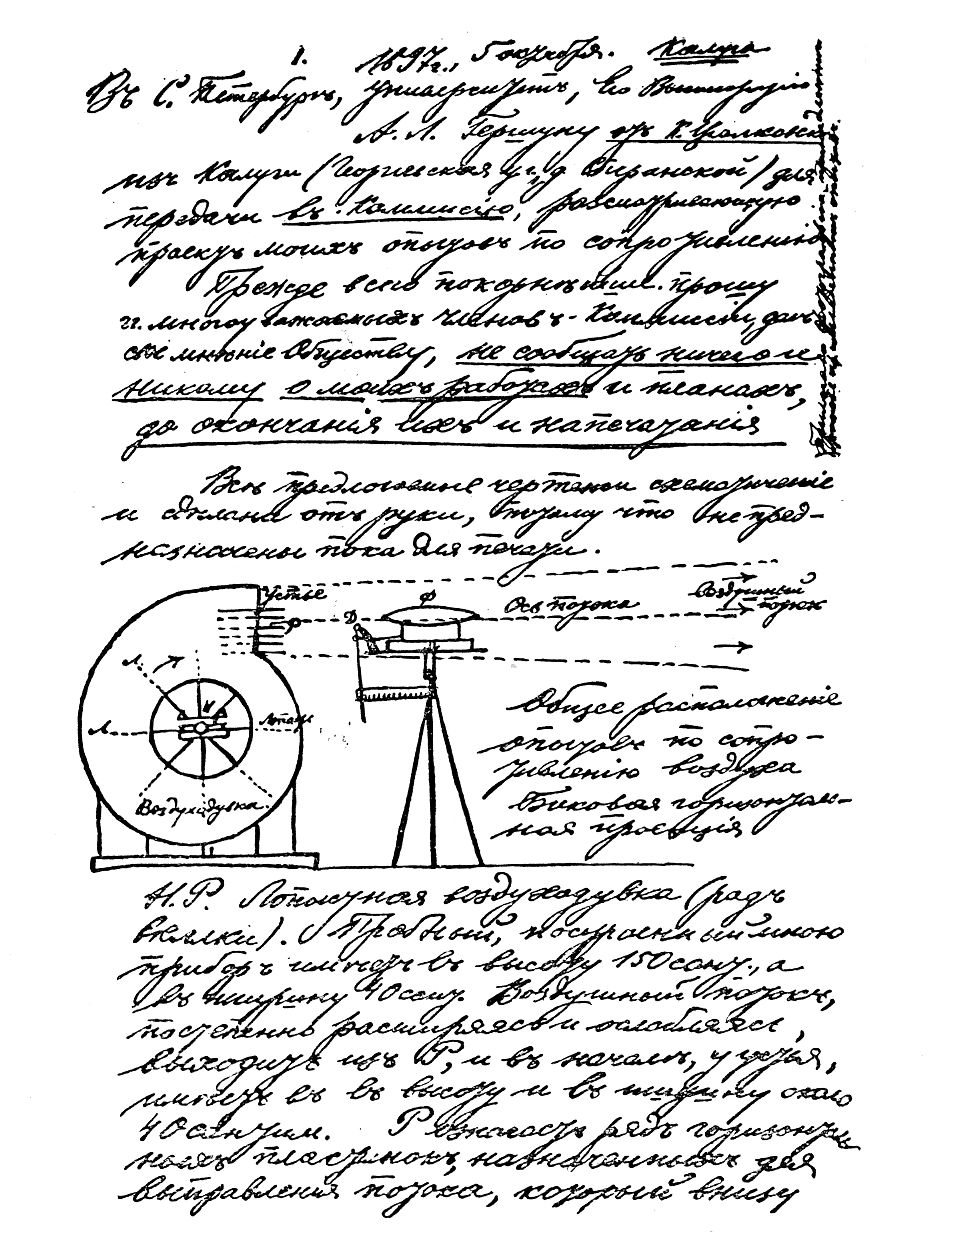 1. 1897 г., 5 октября. Калуга
Въ С. Петербургъ, Университетъ,
А. Л. Гершуну отъ К. Цiолковск
изъ Калуги (Георгiевская ул., д. ) для
передачи въ Коммисiю, рассматривающую
моихъ опытовъ по сопротивленiю
Прежде всего покорнѣйше прошу
гг. многоуважаемыхъ членовъ Коммисiи, дать
свое мнѣнiе Обществу, не сообщать ничего и
никому о моихъ работахъ и планахъ,
до окончанiя ихъ и напечатанiя
Всѣ предложенные чертежи схематичные
и сдѣланы отъ руки, потому что не пред-
назначены пока для печати.
Устье
Р
Д
Ф
Ось потока
Воздушный
потокъ
Л
Л
Лопасть
Воздуходувка
Общее расположенiе
опытовъ по сопро-
тивленiю воздуха
Боковая горизонталь-
ная проекцiя
Н. Р. Лопастная воздуходувка (родъ
вѣялки). Пробный, построенный мною
приборъ имѣетъ въ высоту 150 сант., а
въ ширину 40 сант. Воздушный потокъ,
постепенно расширяясь и ослабляясь,
выходитъ изъ Р, и въ началѣ, у устья,
имѣетъ въ въ высоту и въ ширину около
40 сантим. Р означаетъ рядъ горизонталь
ныхъ пластинокъ, назначенныхъ для
выправленiя потока, который внизу